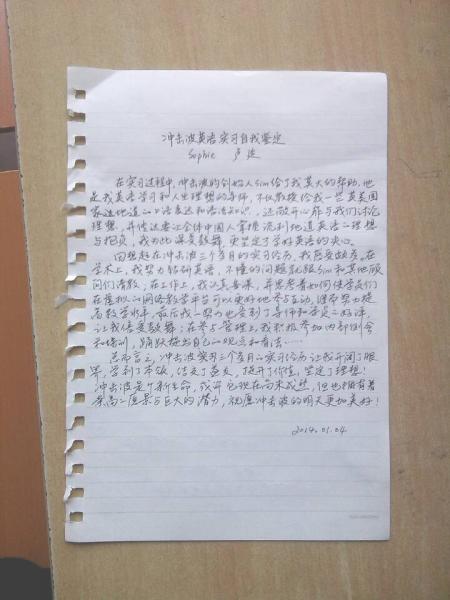 冲击波英语实习自我鉴定
Sophie 卢廷
在实习过程中,冲击波的创始人Sim给了我莫大的帮助,他
是我英语学习和人生理想的导师,不仅教授给我一些英美国
家法地道的口语表达和语法知识,还敞开心扉与我们讨论
理想,并传达要让全体中国人掌握流利地道英语的理想
与抱负,我为此深受鼓舞,更坚定了学好英语的决心。
回想起在冲击波三个月的实习经历,我感受颇多。在
学术上,我努力钻研英语,不懂的问题就跟Sim和其他顾
问们请教;在工作上,我认真备课,并思考着如何使学员们
在虚拟的网络教学平台可以更好地参与互动,继而努力提
高教学水平,最后我的努力也受到了导师和学员的好评,
让我倍受鼓舞;在参与管理上,我积极参加内部例会
和培训,踊跃提出自己的观点和看法……
总而言之,冲击波实习三个月的实习经历让我开阔了眼
界,学到了本领,结交了益友,提升了价值,坚定了理想!
冲击波是个新生命,或许它现在尚未成熟,但也拥有着
崇高的愿景与巨大的潜力,祝愿冲击波的明天更加美好!
2014.01.04